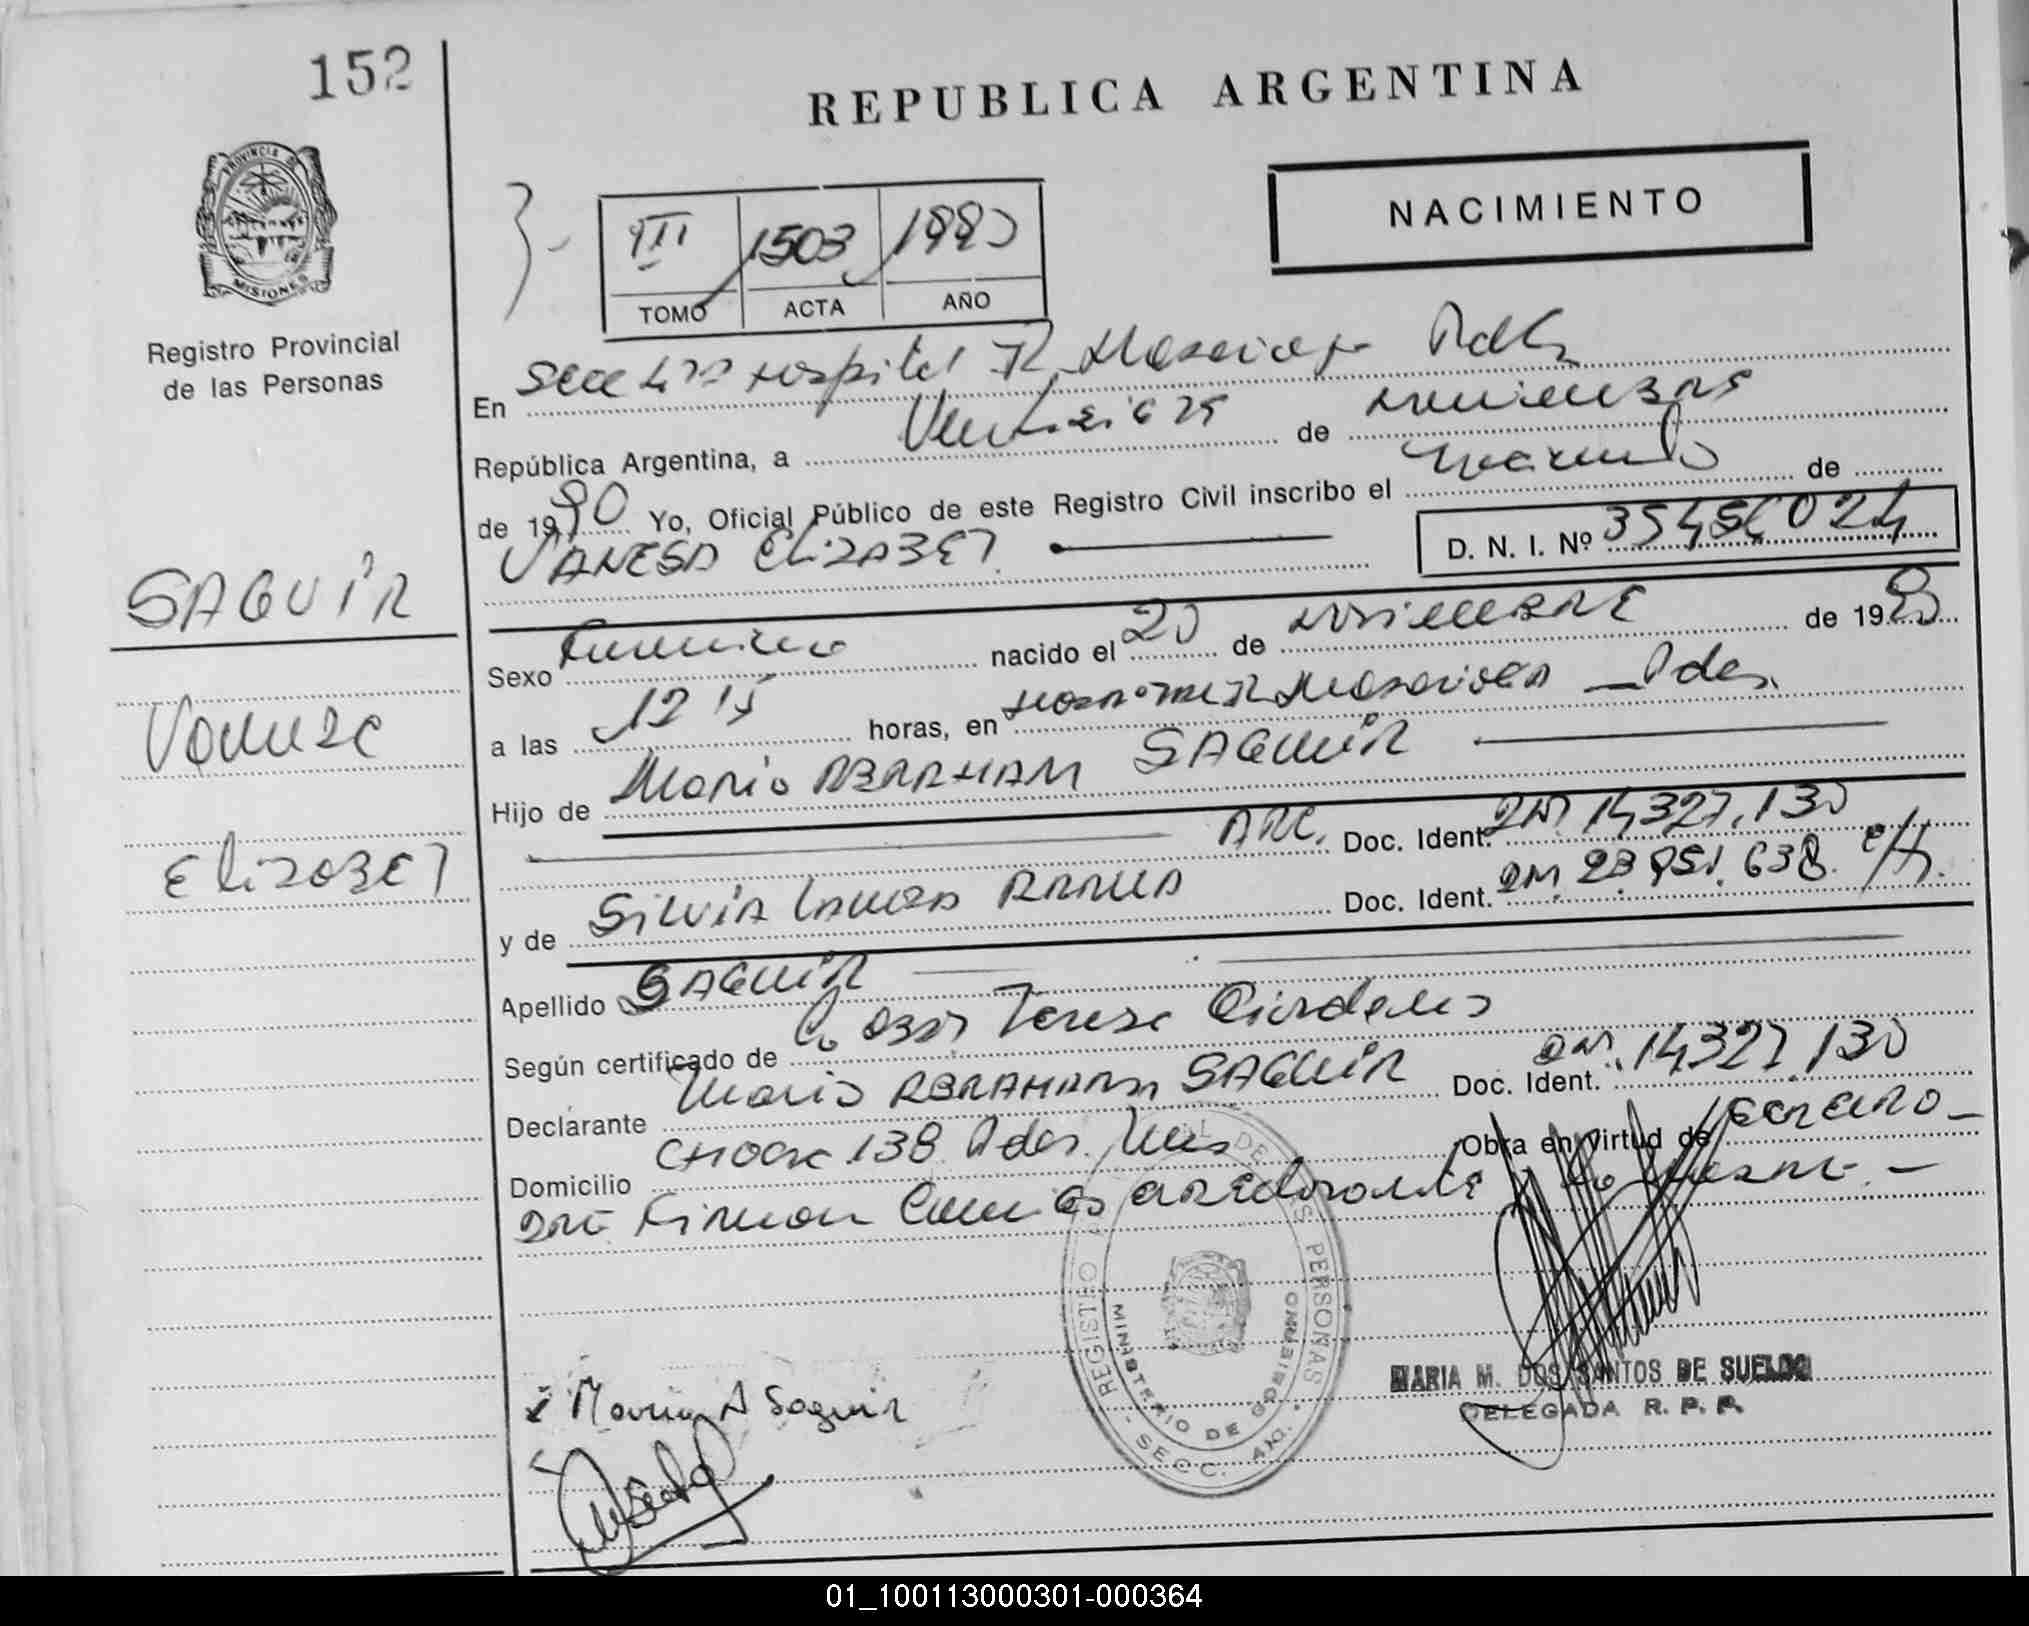 152
REPUBLICA ARGENTINA
NACIMIENTO
PROVINCIA DE
MISIONES
Registro Provincial
de las Personas
III 1503 1990
TOMO ACTA AÑO
En Secc 4ta Hospital R. Madariaga Pdas
República Argentina, a Veintiseis de noviembre
de 1990 Yo, Oficial Público de este Registro Civil inscribo el nacimiento de
VANESA ELIZABET
D. N. I. Nº 35456024
SAGUIR
Vanesa
Elizabet
Sexo Femenino nacido el 20 de NOVIEMBRE de 1990
a las 12 15 horas, en Madariaga Pdas.
Hijo de Mario ABRAHAM SAGUIR
ARG. Doc. Ident. DNI 14327.130
y de SILVIA LAURA Doc. Ident. DNI 23.951.638
Apellido SAGUIR
Según certificado de Teresa
Declarante Mario ABRAHAM SAGUIR Doc. Ident. DNI. 14327.130
Domicilio 138 Pdas. Mnes Obra en Virtud de
Firman
REGISTRO DE LAS PERSONAS
MINISTERIO DE GOBIERNO
SECC. 4ta.
Mario A Saguir
MARIA M. DOS SANTOS DE SUELDO
DELEGADA R. P. P.
01_100113000301-000364